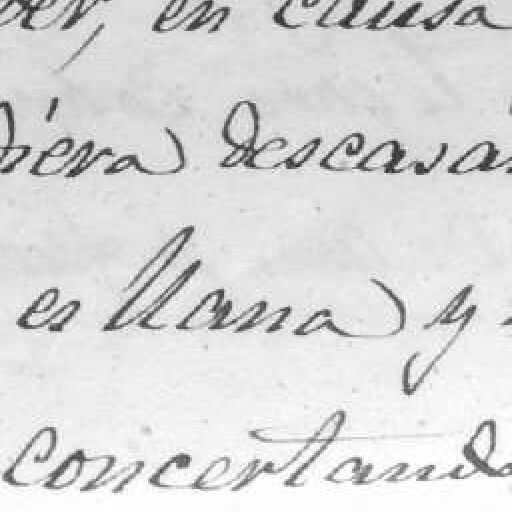 en causa
descasa
es llana y
concertand